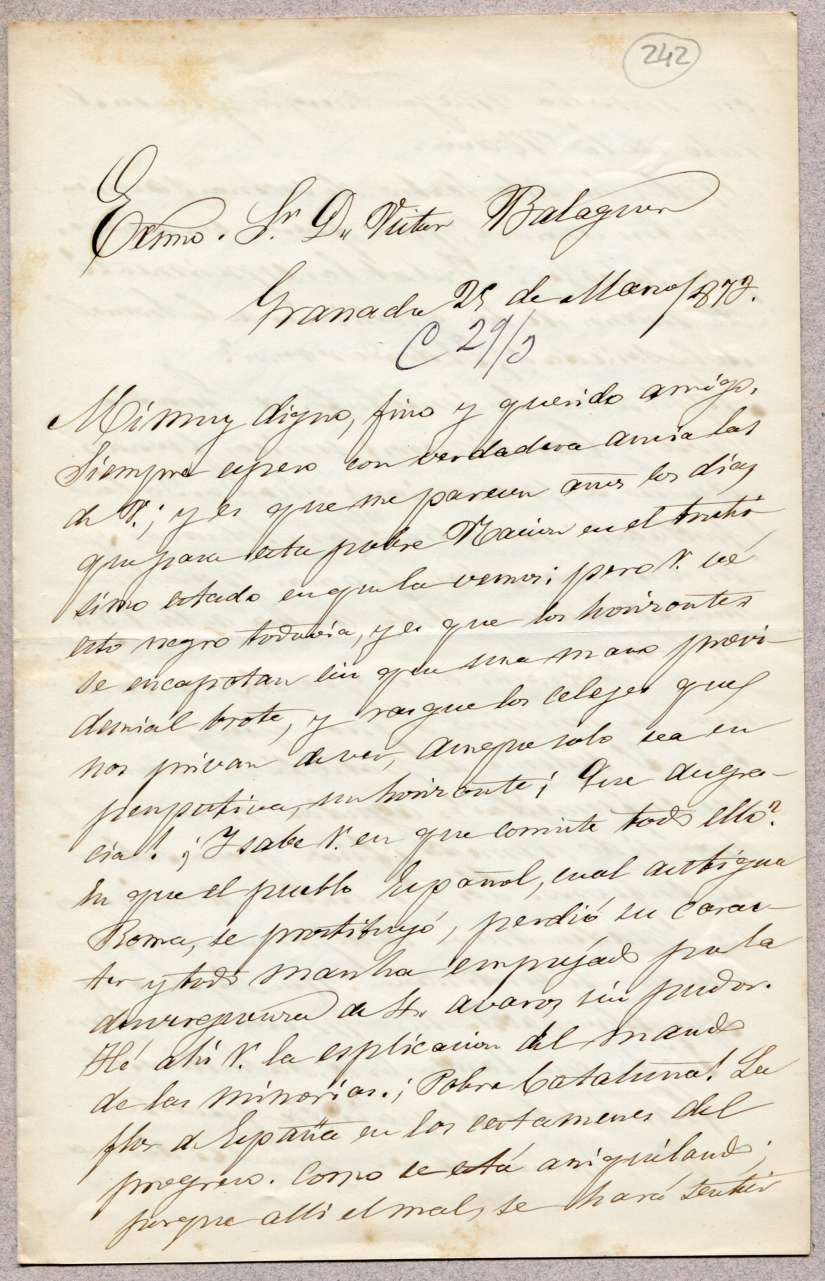 242
Exmo. Sr. Dn. Victor Balaguer
Granada 25 de Marzo/1873.
C 29/3
Mi muy digno, fino y querido amigo,
Siempre espero con verdadera ansia las
de V.; y es que me parecen años los dias
que pasa esta pobre Nacion en el tristí
simo estado en que la vemos; pero V. vé
esto negro todavia, y es que los horizontes
se encapotan sin que una mano provi-
dencial brote, y rasgue los celages que
nos privan de ver, aunque solo sea en
perspectiva, un horizonte; Que desgra-
cia! ¿Y sabe V. en que consiste todo ello?
En que el pueblo Español, cual antigua
Roma, se prostituyó, perdió su carac-
ter y todo marcha empujado por la
desvergüenza de 4 avaros sin pudor.
Hé ahi V. la esplicacion del mando
de las minorias. ¡Pobre Cataluña! La
flor de España en los certamenes del
progreso. Como se está aniquilando;
porque alli el mal, se hará sentir